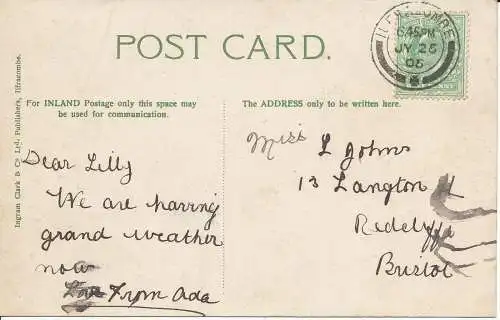 ILFRACOMBE
6.45PM
JY 25
05
POST CARD.
For INLAND Postage only this space may
be used for communication.
The ADDRESS only to be written here.
Ingram Clark & Co Ltd. Publishers, Ilfracombe.
Dear Lilly
We are having
grand weather
now
Love From Ada
Miss L Johns
13 Langton St
Redclyffe
Bristol